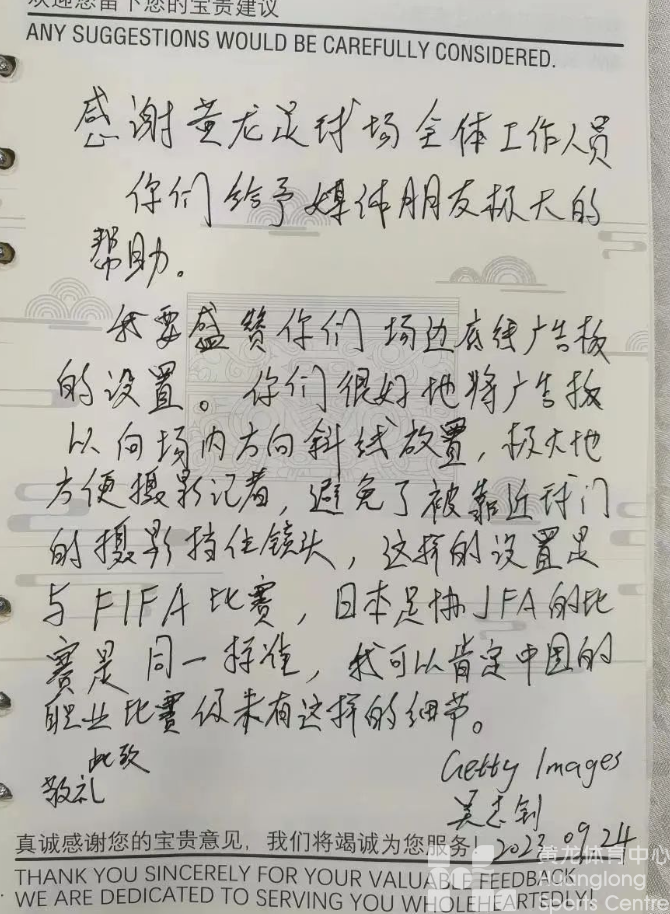 欢迎您留下您的宝贵建议
ANY SUGGESTIONS WOULD BE CAREFULLY CONSIDERED.
感谢黄龙足球场全体工作人员
你们给予媒体朋友极大的
帮助。
我要盛赞你们场边底线广告板
的设置。你们很好地将广告板
以向场内方向斜线放置，极大地
方便摄影记者，避免了被靠近球门
的摄影挡住镜头，这样的设置是
与FIFA比赛，日本足协JFA的比
赛是同一标准，我可以肯定中国的
职业比赛从未有这样的细节。
此致
敬礼
Getty Images
吴志钊
真诚感谢您的宝贵意见，我们将竭诚为您服务！2023 09.24
THANK YOU SINCERELY FOR YOUR VALUABLE FEEDBACK
WE ARE DEDICATED TO SERVING YOU WHOLEHEARTEDLY!
黄龙体育中心
Huanglong
Sports Centre